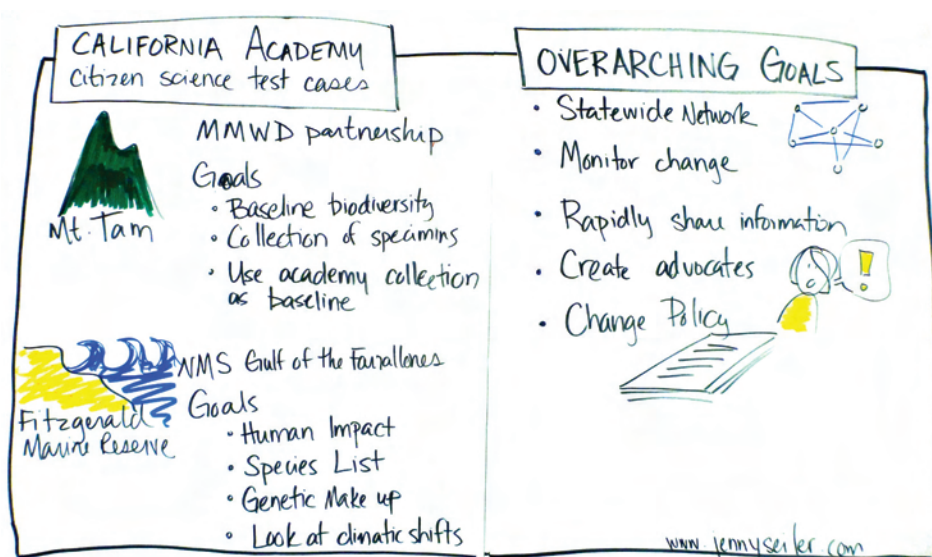 CALIFORNIA ACADEMY
citizen science test cases
MMWD partnership
Goals
• Baseline biodiversity
• Collection of specimins
• Use academy collection
as baseline
Mt. Tam
NMS Gulf of the Farallones
Goals
• Human Impact
• Species List
• Genetic Make up
• Look at climatic shifts
Fitzgerald
Marine Reserve
OVERARCHING GOALS
• Statewide Network
• Monitor change
• Rapidly share information
• Create advocates
• Change Policy
!
www.jennyseiler.com